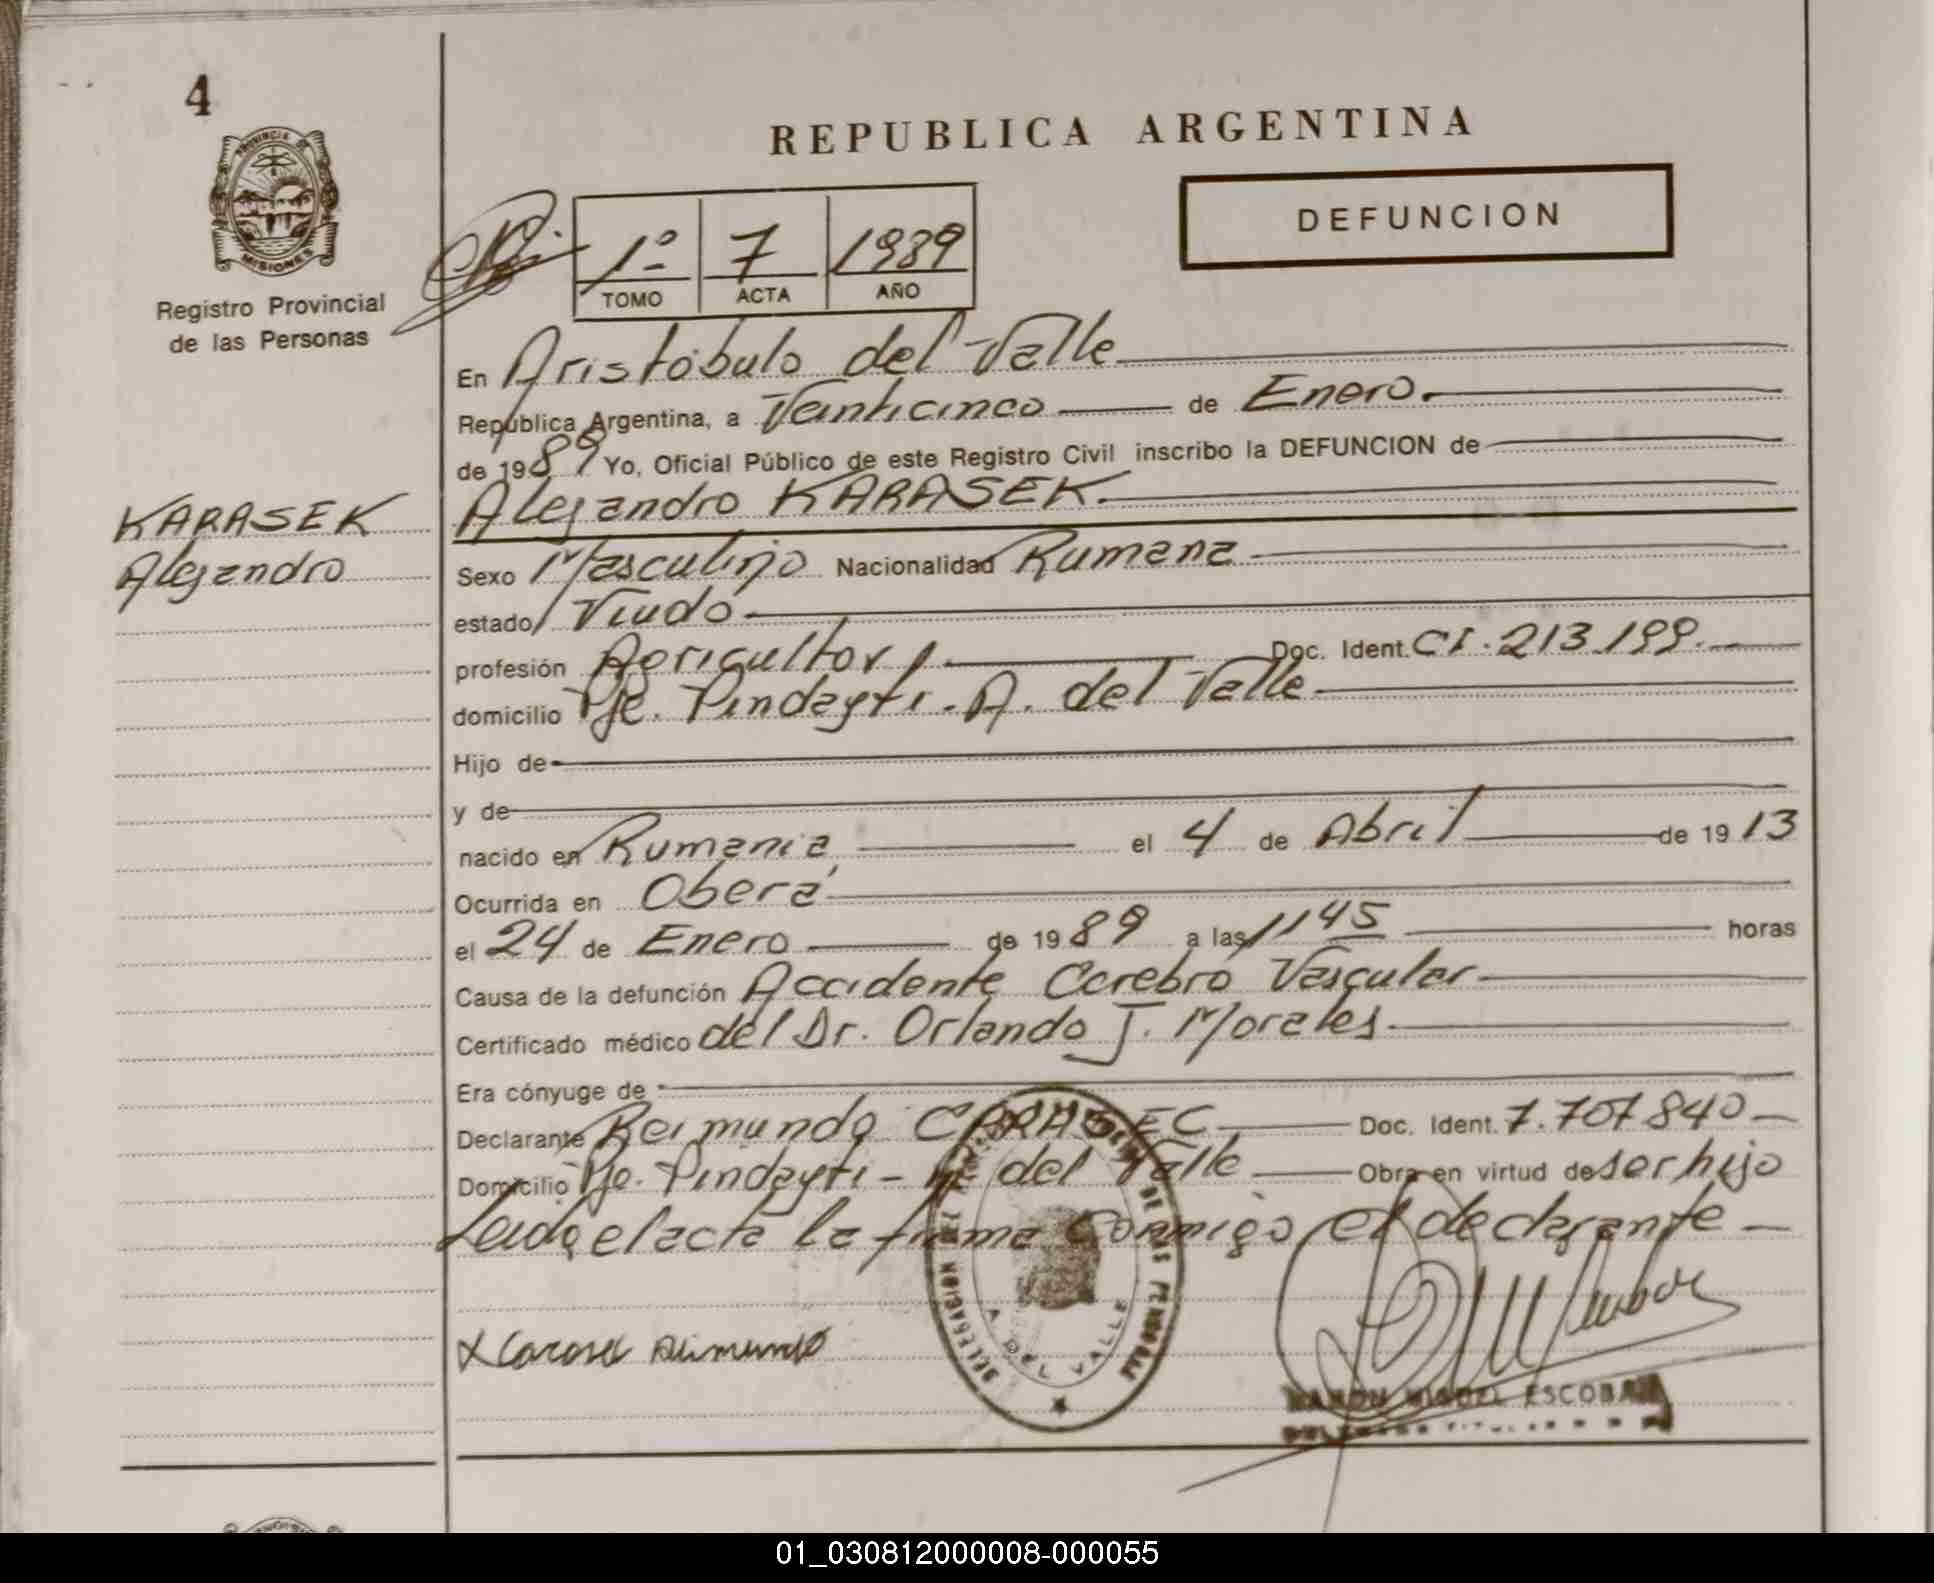 4
PROVINCIA DE
MISIONES
Registro Provincial
de las Personas
REPUBLICA ARGENTINA
DEFUNCION
1º 7 1989
TOMO ACTA AÑO
En Aristóbulo del Valle
República Argentina, a Veinticinco de Enero.
de 1989 Yo, Oficial Público de este Registro Civil inscribo la DEFUNCION de
KARASEK
Alejandro
Alejandro KARASEK.
Sexo Masculino Nacionalidad Rumana
estado Viudo
profesión Agricultor Doc. Ident. CI. 213.199.
domicilio Pje. Pindayti. A. del Valle
Hijo de
y de
nacido en Rumania el 4 de Abril de 1913
Ocurrida en Oberá
el 24 de Enero de 1989 a las 1145 horas
Causa de la defunción Accidente Cerebro Vascular
Certificado médico del Dr. Orlando J. Morales.
Era cónyuge de
Declarante Reimundo CARASEC Doc. Ident. 7.707.840
Domicilio Pje. Pindayti - A. del Valle Obra en virtud de ser hijo
Leida el acta la firma conmigo el declarante
DELEGACION DE LAS PERSONAS
A. DEL VALLE
X Carasec Reimundo
RAMON MIGUEL ESCOBAR
01_030812000008-000055